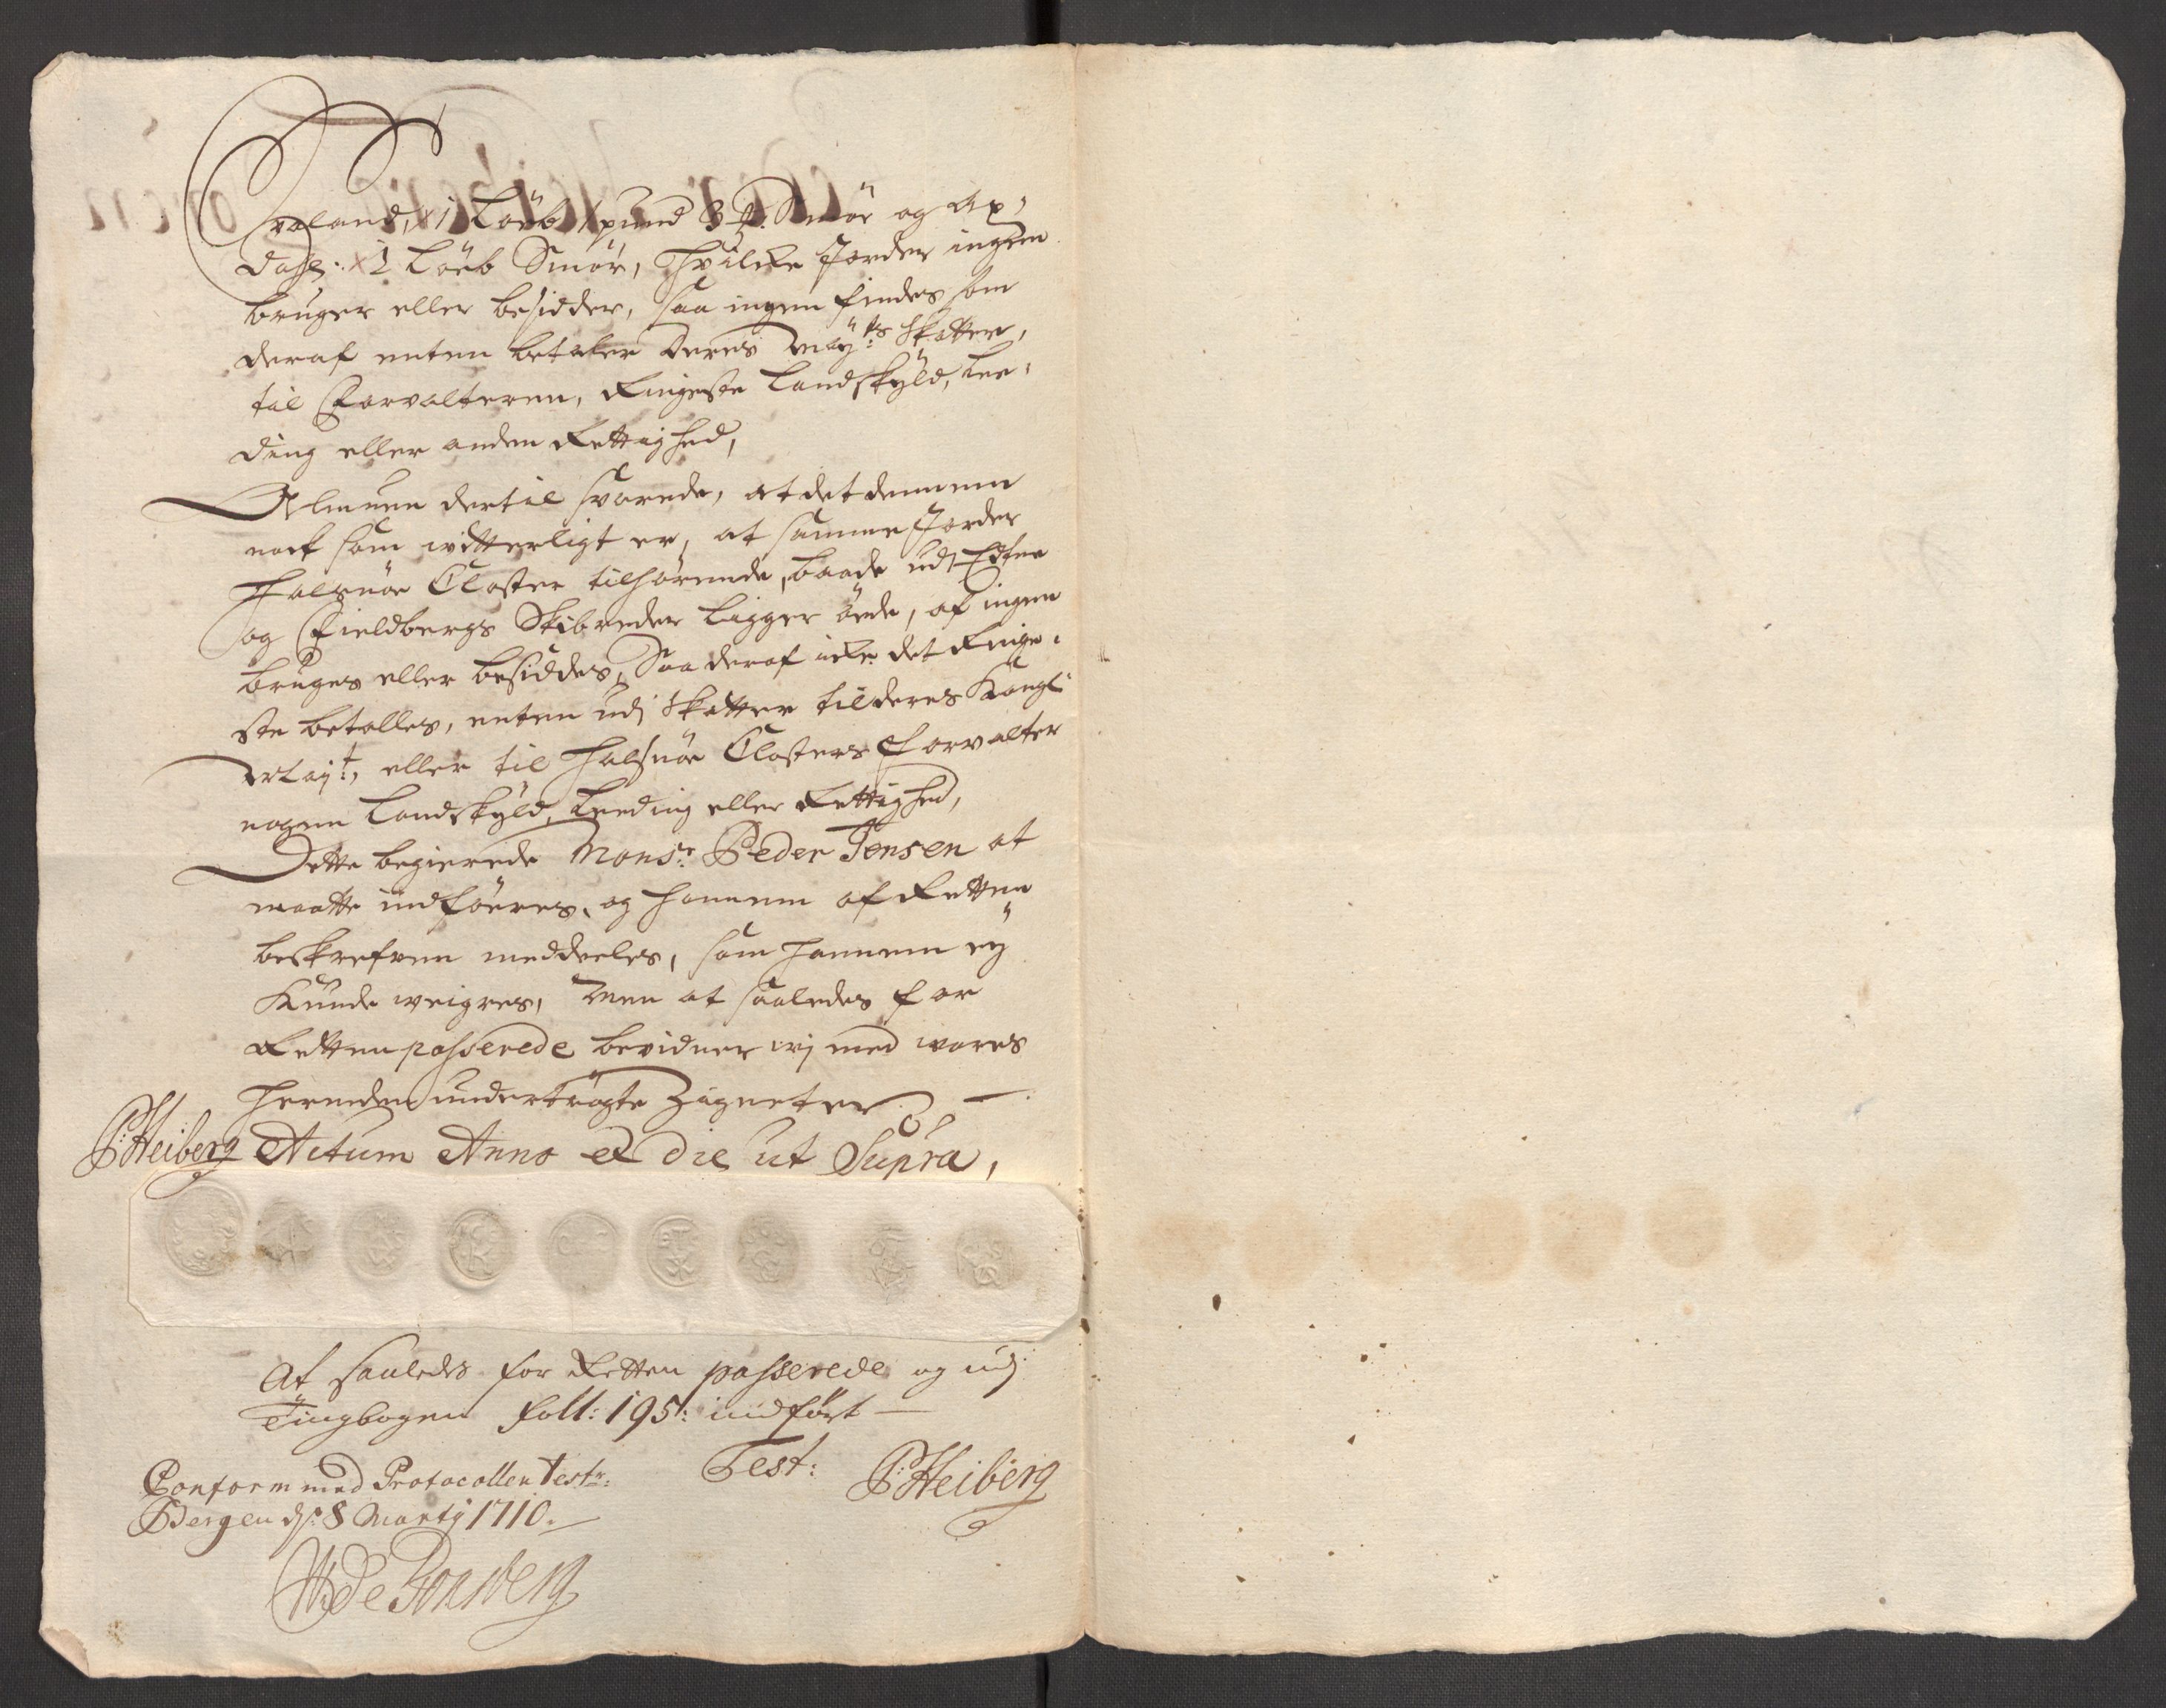 Løeb 1 pund 3 Smør og Ax,
dahl: x 1 Løeb Smør, Hvilke Jorder ingen
bruger eller besidder, saa ingen findes som
deraf enten betaler Deres Maÿts Skatter,
til Forvalteren, Ringeste Landskÿld, Lee,
ding eller anden Rettighed,
Almuen dertil svarede, at det dennem
nock som witterligt er, at samme Jorder
Halsnøe Closter tilhørende, baade udj Etne
og Fieldbergs Skibreder ligger øede, af ingen
bruges eller besiddes, Saa deraf icke det Ringe,
ste betalles, enten udj Skatter til deres Kongl:
Maÿt:, eller til Halsnøe Closters Forvalter
nogen Landskÿld, Leeding eller Rettighed,
Dette begierede Monsr: Peder Jensen at
maatte indføeres, og hannem af Retten
beskrefven meddeeles, som hannem eÿ
Kunde weigres, Men at saaledes for
Retten passerede bevidner wj med wores
herneden undertrøgte Zigneter.
P: Heiberg Actum Anno et die ut Supra,
At saaledes for Retten passerede og udj
Tingbogen foll: 195: indført
Test: P: Heiberg
Conform med Protocollen Testr:
Bergen ds: 8 Martij 1710.